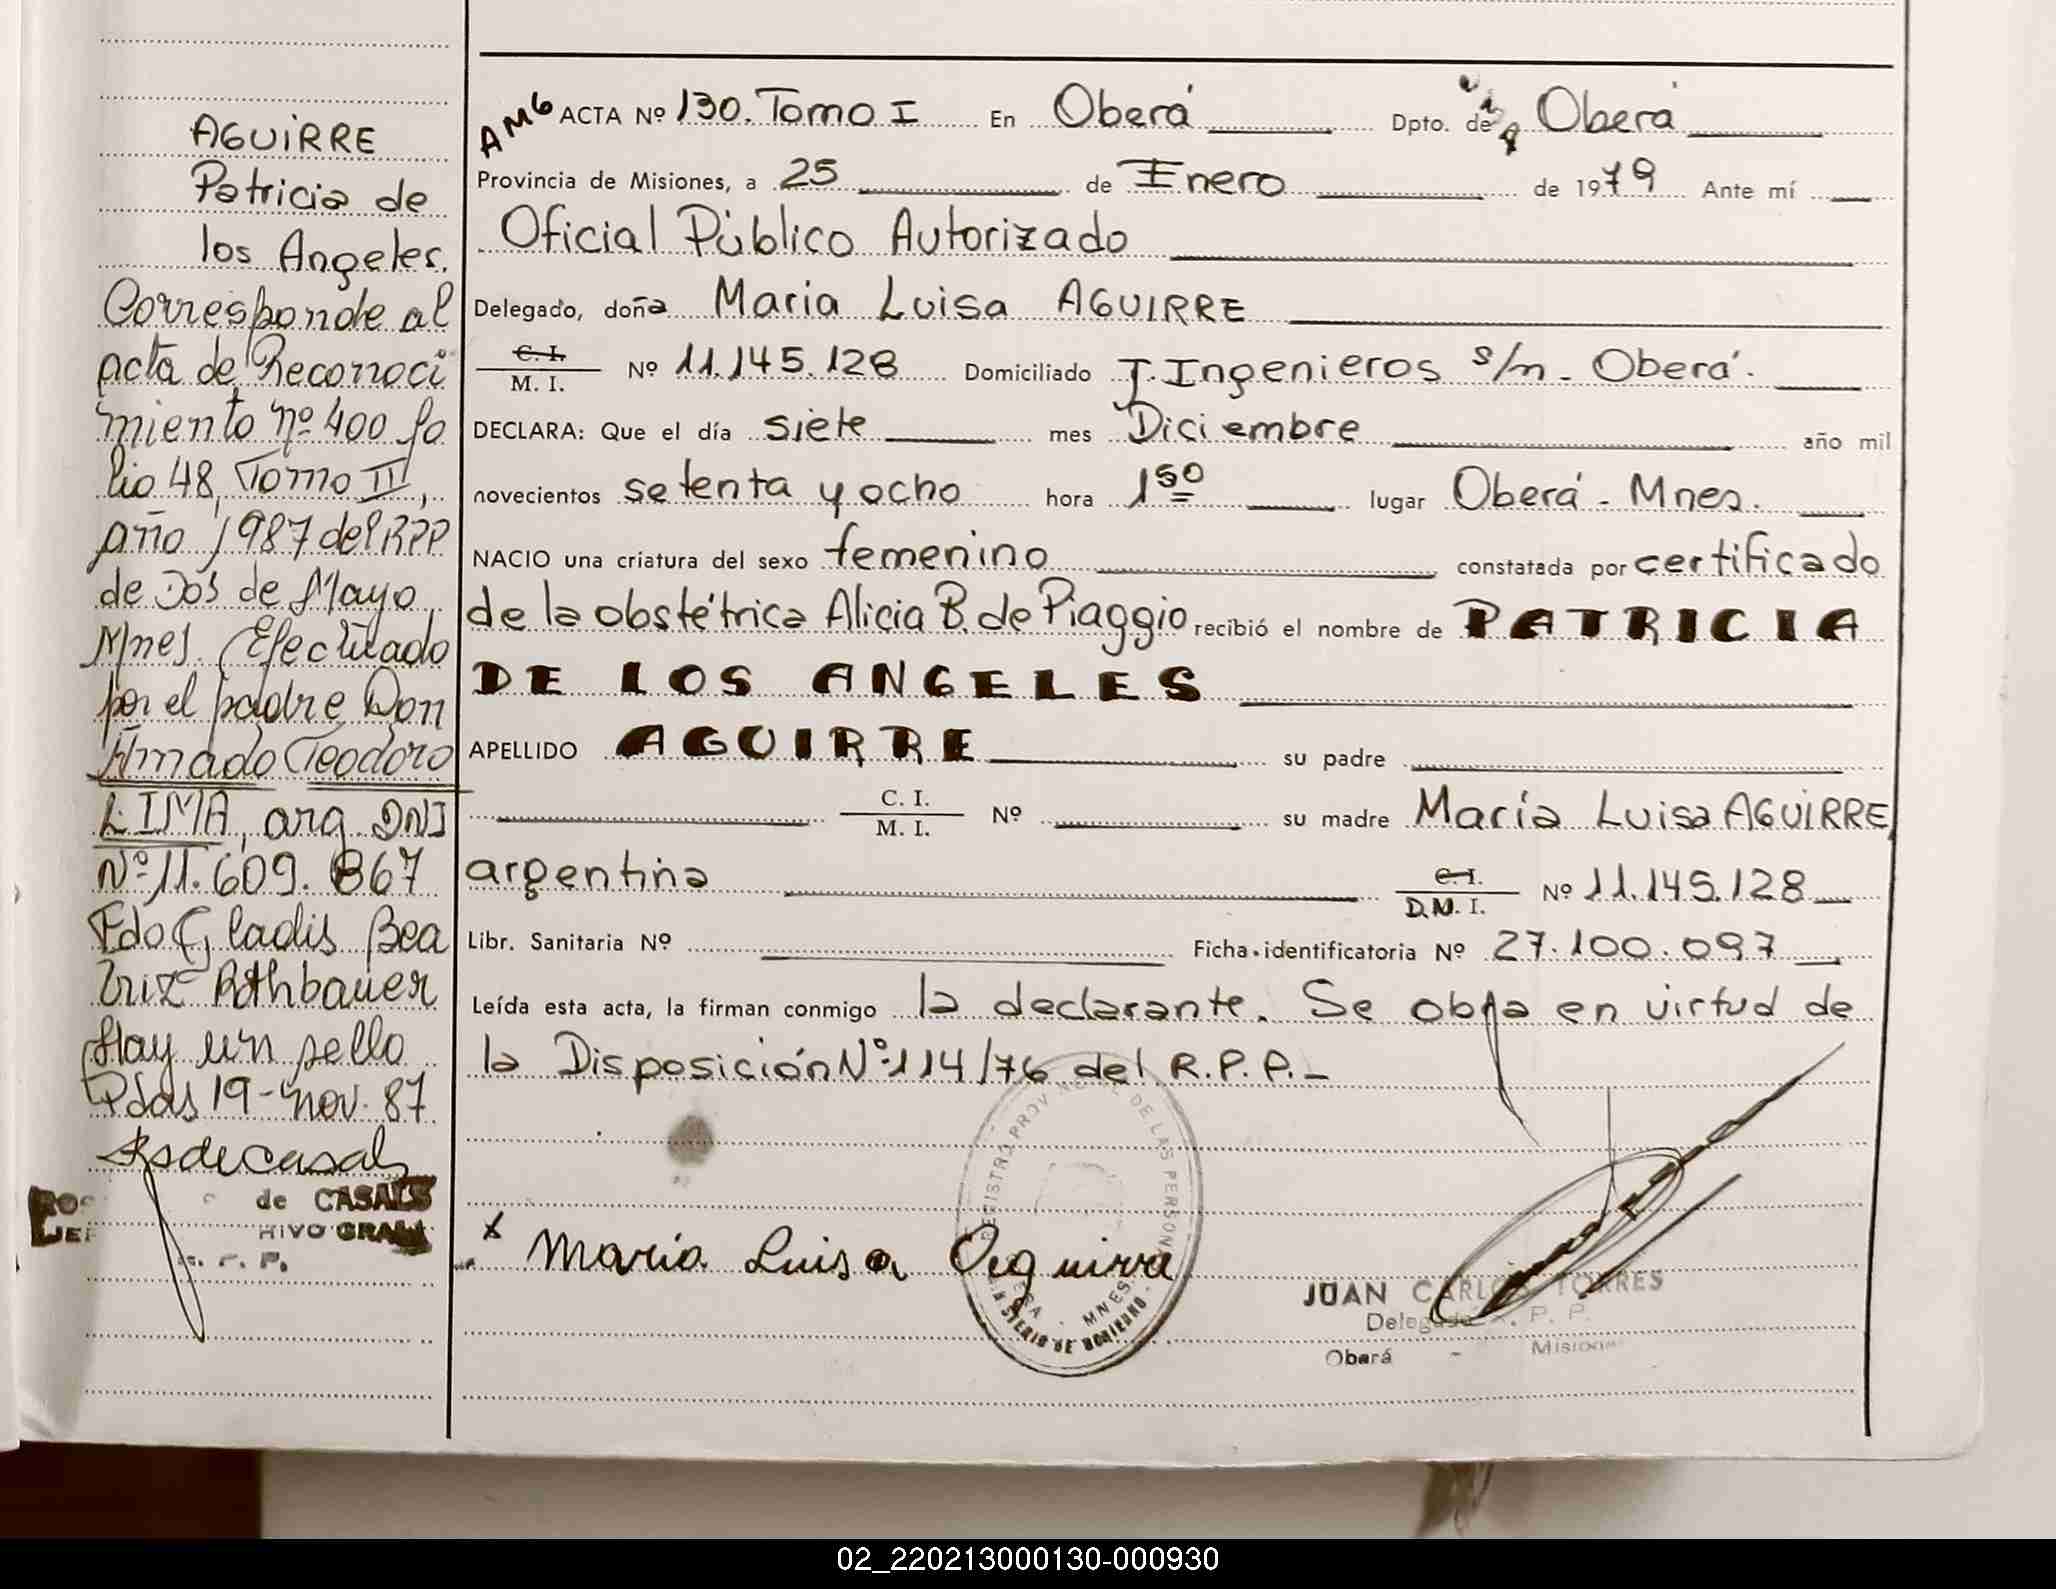 AGUiRRE
Patricia de
los Angeles.
Corresponde al
acta de Reconoci
miento nº 400 fo
lio 48, Tomo III,
año 1987 del RPP
de Dos de Mayo
Mnes. Efectuado
por el padre Don
Amado Teodoro
LIMA, arg. DNI
Nº 11.609.867
Fdo Gladis Bea
triz Rothbauer
Hay un sello
Pdas 19-nov. 87
de CASALS
HIVO GRAL
P.
AMG ACTA Nº 130. Tomo I En Oberá Dpto. de Oberá
Provincia de Misiones, a 25 de Enero de 1979 Ante mí
Oficial Público Autorizado
Delegado, doña Maria Luisa AGUIRRE
C. I.
M. I. Nº 11.145.128 Domiciliado J. Ingenieros s/n - Oberá.
DECLARA: Que el día siete mes Diciembre año mil
novecientos setenta y ocho hora 1 50 lugar Oberá - Mnes.
NACIO una criatura del sexo femenino constatada por certificado
de la obstétrica Alicia B. de Piaggio recibió el nombre de PATRICIA
DE LOS ANGELES
APELLIDO AGUIRRE su padre
C. I.
M. I. Nº su madre María Luisa AGUiRRE,
argentina C. I.
D.N. I. Nº 11.145.128
Libr. Sanitaria Nº Ficha identificatoria Nº 27.100.097
Leída esta acta, la firman conmigo la declarante. Se obra en virtud de
la Disposición Nº 114/76 del R.P.P.-
REGISTRO PROV DE LAS PERSON
MNES
DE GOBIERNO
x Maria Luisa Aguirre
JUAN CARLOS TORRES
Delegado R. P. P.
Oberá - Misiones
02_220213000130-000930